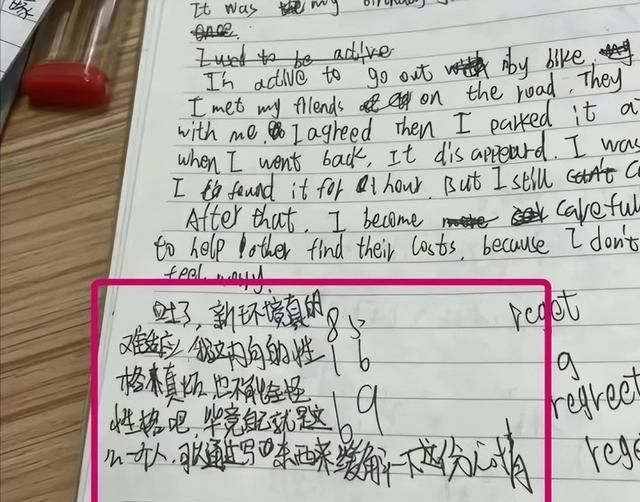 缘
It was my birthday
once
I used to be active
I'm active to go out by bike.
I met my fliends on the road. They
with me. I agreed then I parked it a
when I went back, It disappeard. I was
I found it for 1 hour. But I still can't c
After that, I become careful
to help other find their losts, because I don't
feel worry.
吐了, 新环境真的 85 reget
难适应, 我这内向的性 16 g
格来真烦, 也不能全怪 69 regreet
性格吧, 毕竟自己就是这 reg
么一个人, 可以通过写 东西来缓解一下这份心情